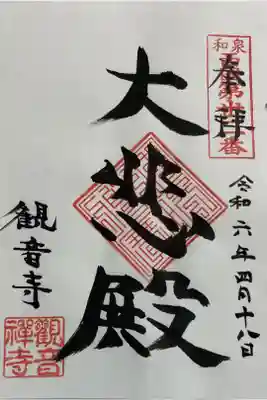 和泉
奉拝
令和六年四月十八日
大悲殿
観音寺
觀音
禅寺